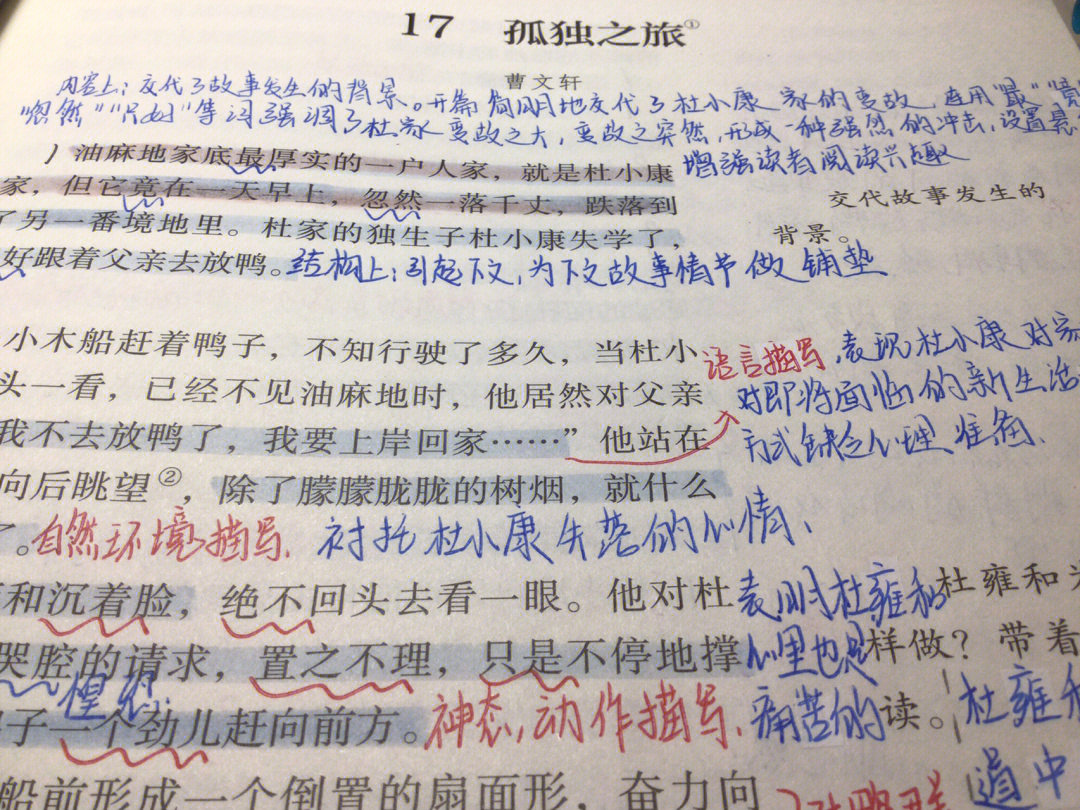 17 孤独之旅①
曹文轩
内容上：交代了故事发生的背景。开篇简明地交代了杜小康家的变故，连用"最""竟
"忽然""只好"等词强调了杜家变故之大，变故之突然，形成一种强烈的冲击，设置悬
油麻地家底最厚实的一户人家，就是杜小康 增强读者阅读兴趣
家，但它竟在一天早上，忽然一落千丈，跌落到 交代故事发生的
了另一番境地里。杜家的独生子杜小康失学了， 背景。
好跟着父亲去放鸭。结构上：引起下文，为下文故事情节做铺垫
小木船赶着鸭子，不知行驶了多久，当杜小 语言描写，表现杜小康对家
头一看，已经不见油麻地时，他居然对父亲 对即将面临的新生活
我不去放鸭了，我要上岸回家……"他站在 方式缺乏心理准备、
向后眺望②，除了朦朦胧胧的树烟，就什么
了。自然环境描写、衬托杜小康失落的心情、
和沉着脸，绝不回头去看一眼。他对杜 表明杜雍和 杜雍和为
哭腔的请求，置之不理，只是不停地撑 心里也是 样做？带着
子一个劲儿赶向前方。神态，动作描写、痛苦的 读。 杜雍和
道中
船前形成一个倒置的扇面形，奋力向